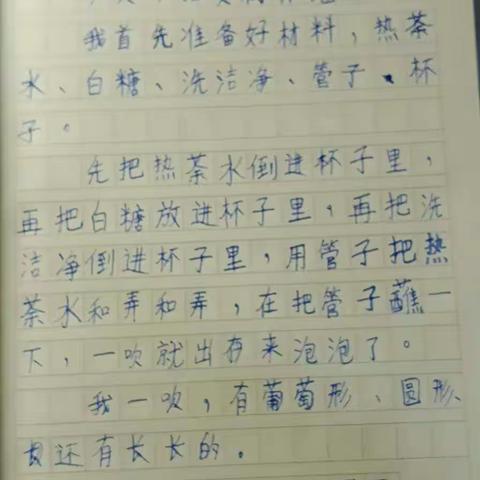 我首先准备好材料，热茶
水、白糖、洗洁净、管子、杯
子。
先把热茶水倒进杯子里，
再把白糖放进杯子里，再把洗
洁净倒进杯子里，用管子把热
茶水和弄和弄，在把管子蘸一
下，一吹就出存来泡泡了。
我一吹，有葡萄形、圆形、
还有长长的。